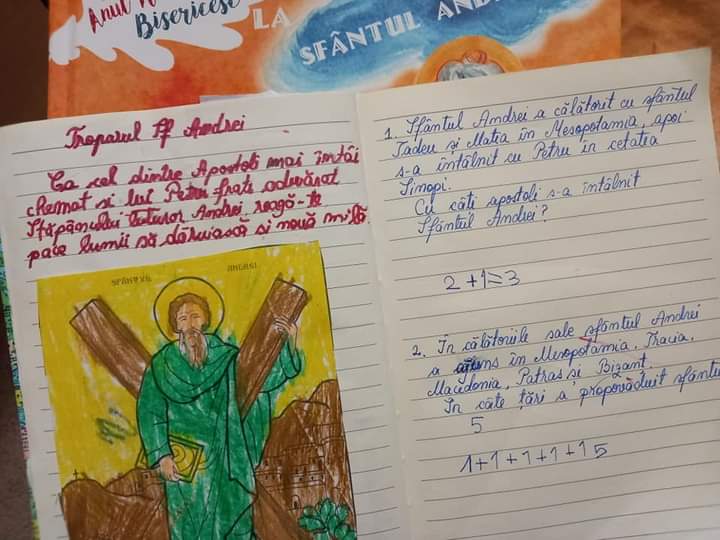 Anul
Bisericesc
LA
SFÂNTUL AND
Troparul Sf Andrei
Ca cel dintre Apostoli mai întâi
chemat si lui Petru frate adevărat
Stăpânului tuturor Andrei roagă-te
pace lumii să dăruiască si nouă milă
SFÂNTUL ANDREI
1. Sfântul Andrei a călătorit cu sfântul
Tadeu și Matia în Mesopotamia, apoi
s-a întâlnit cu Petru în cetatea
Sinopi.
Cu câți apostoli s-a întâlnit
Sfântul Andrei?
2+1=3
2. În călătoriile sale sfântul Andrei
a ajuns în Mesopotamia, Tracia,
Macedonia, Patras și Bizanț.
În câte țări a propovăduit sfântul
5
1+1+1+1+1 5